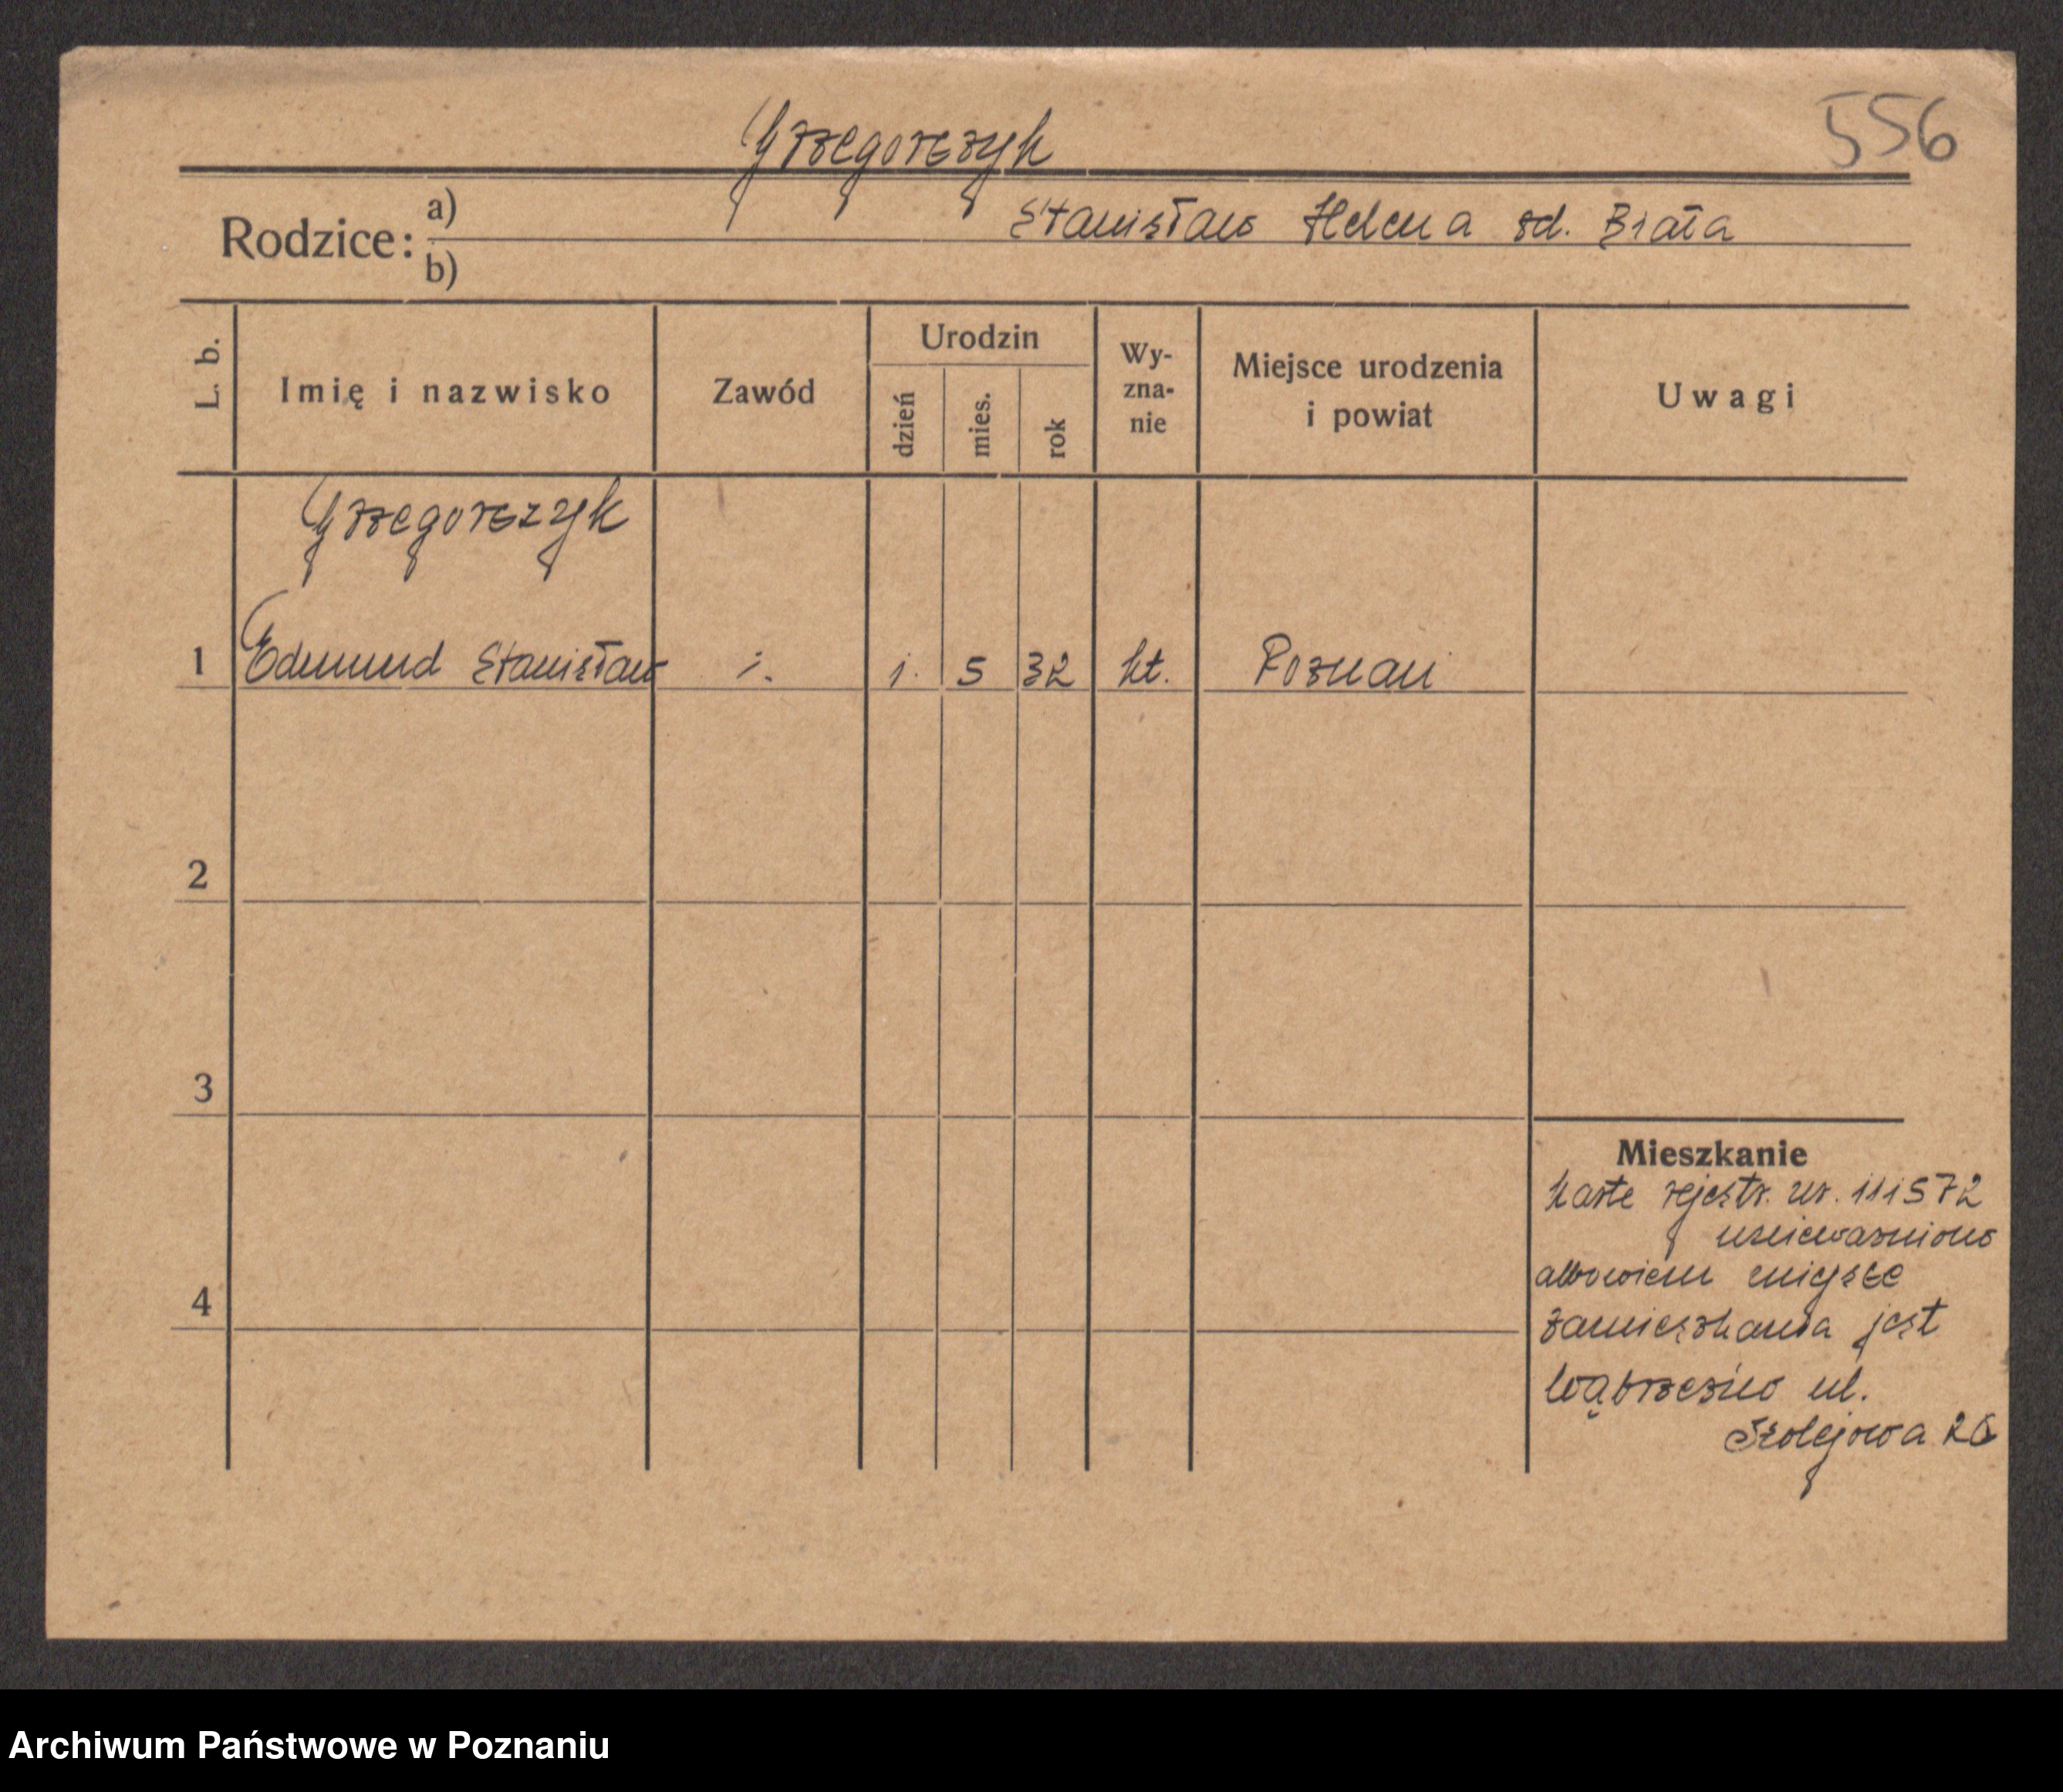 556
Grzegorczyk
Rodzice: a) Stanisław Helena sd. Biała
b)
L. b. Imię i nazwisko Zawód Urodzin dzień mies. rok Wy-zna-nie Miejsce urodzenia i powiat Uwagi
Grzegorczyk
1 Edmund Stanisław i. 1. 5 32 kt. Poznań
2
3
Mieszkanie
Karte rejestr. nr. 111572
unieważniono
albowiem miejsce
4
zamieszkania jest
Wąbrzeźno ul.
26
Archiwum Państwowe w Poznaniu